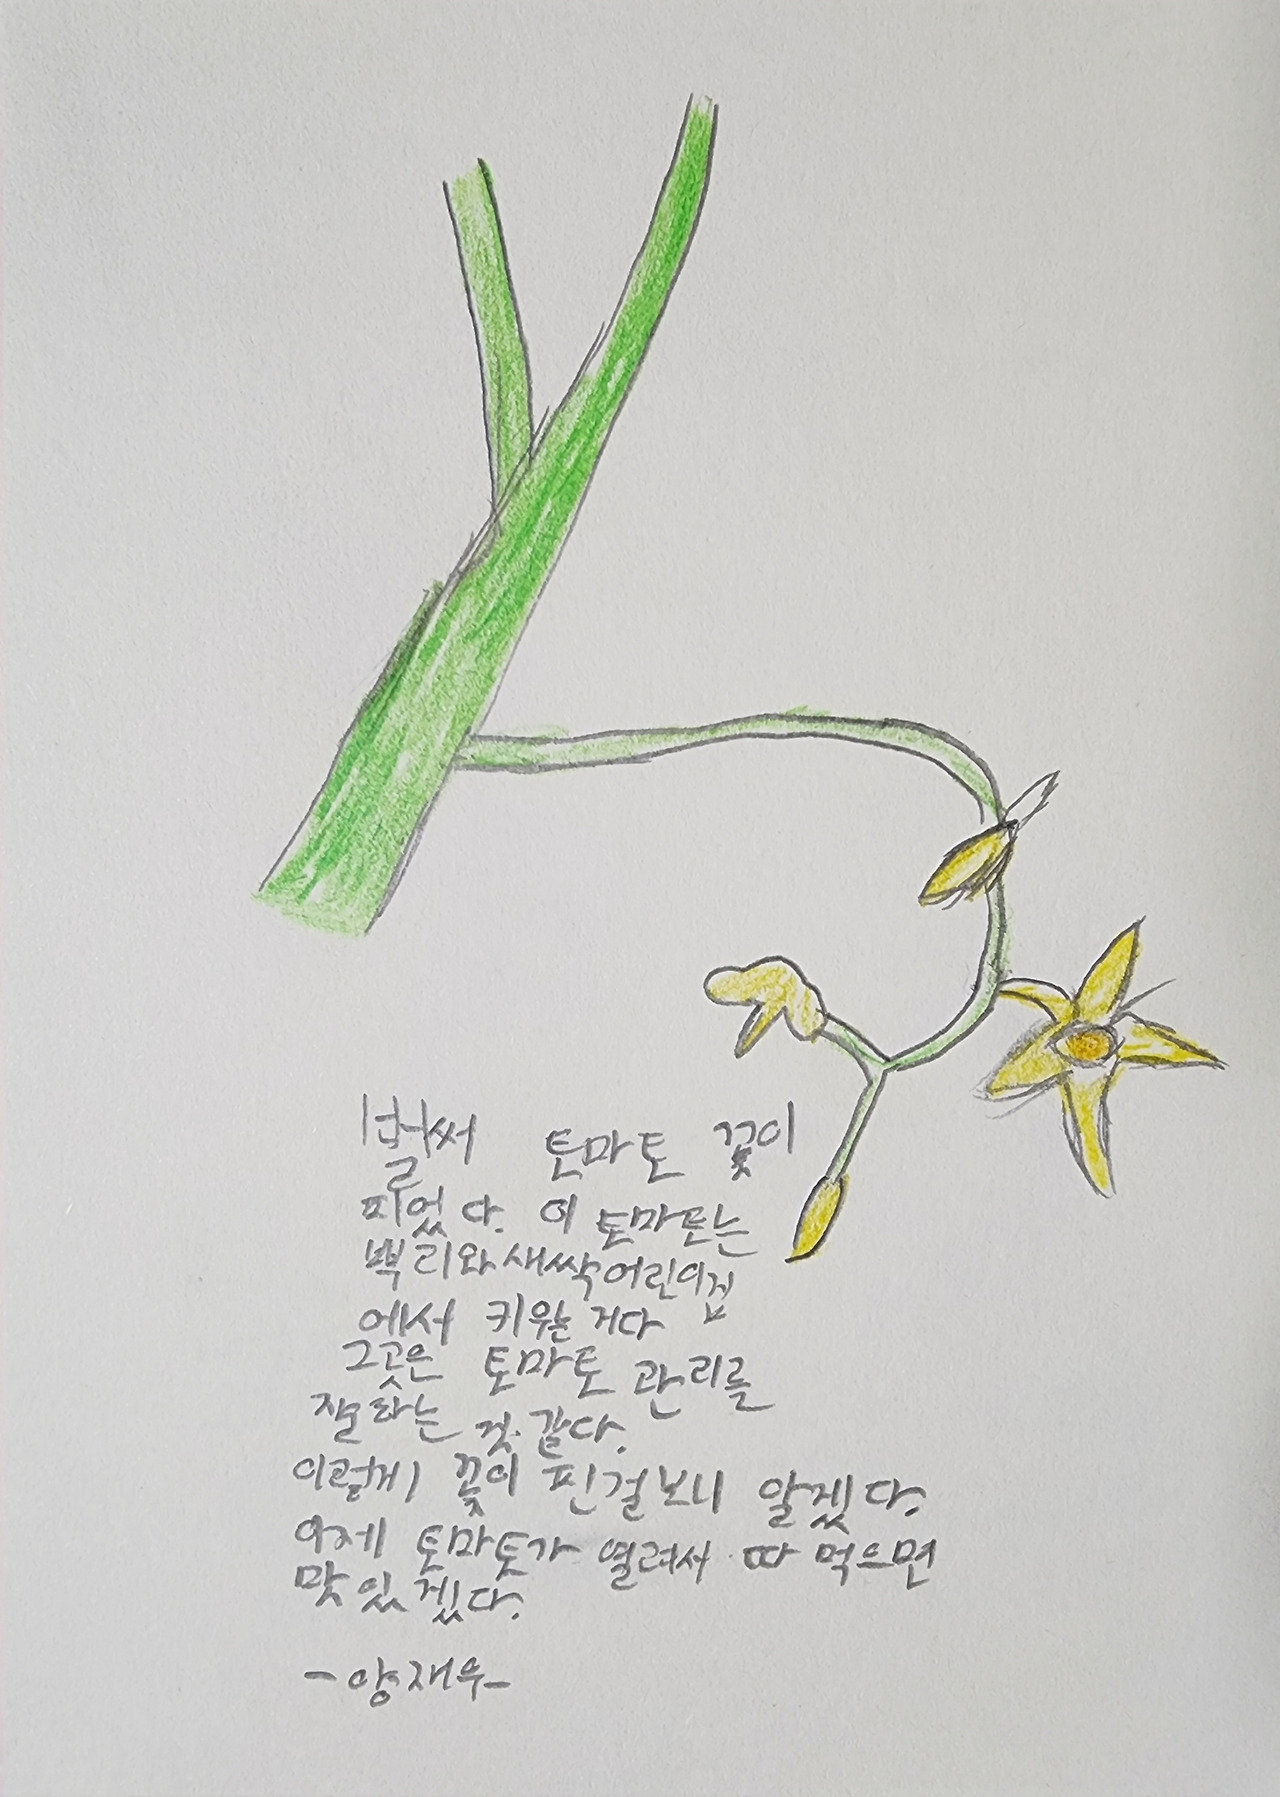 벌써 토마토 꽃이
피었다. 이 토마토는
뿌리와새싹어린이집
에서 키우는 거다
그곳은 토마토 관리를
잘하는 것 같다.
이렇게 꽃이 핀걸보니 알겠다.
이제 토마토가 열려서 따 먹으면
맛있겠다.
-양재우-